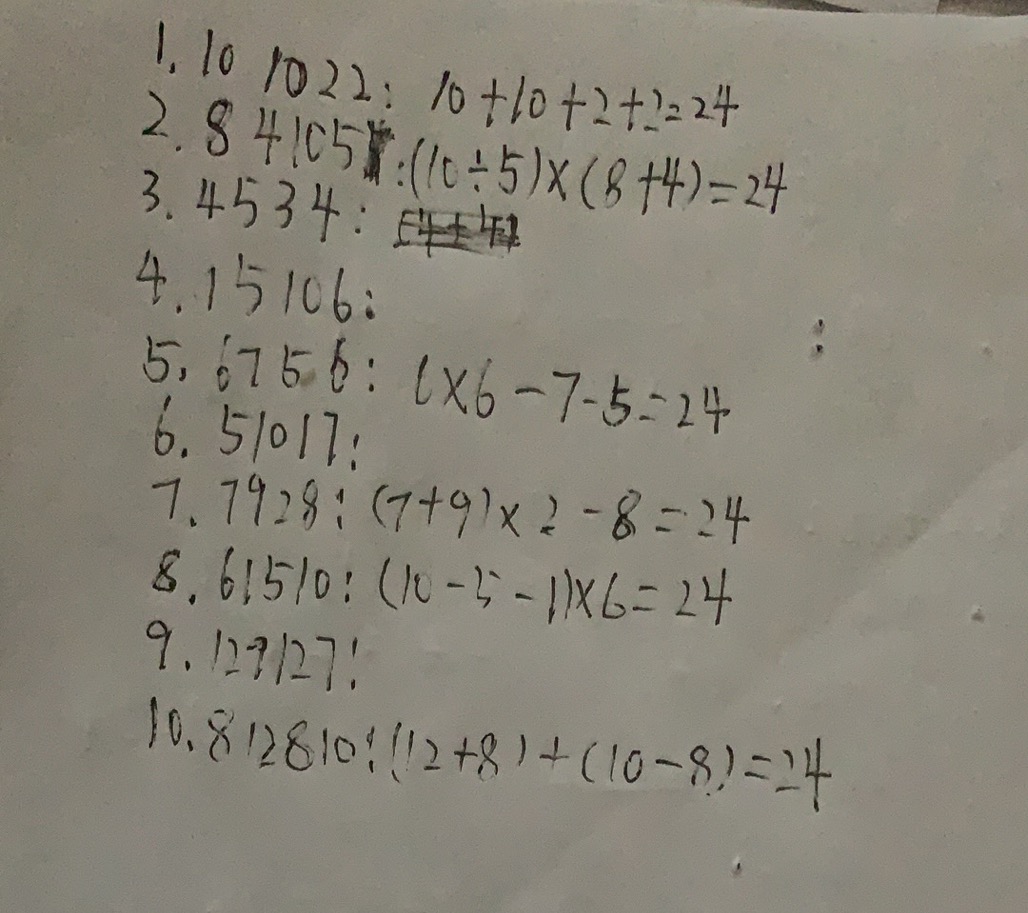 1. 10 10 2 2: 10+10+2+2=24
2. 8 4 10 5 :(10÷5)×(8+4)=24
3. 4 5 3 4:
4. 1 5 10 6:
5. 6 7 5 6: 6×6-7-5=24
6. 5 10 1 7:
7. 7 9 2 8: (7+9)×2-8=24
8. 6 1 5 10: (10-5-1)×6=24
9. 12 7 12 7:
10. 8 12 8 10: (12+8)+(10-8)=24